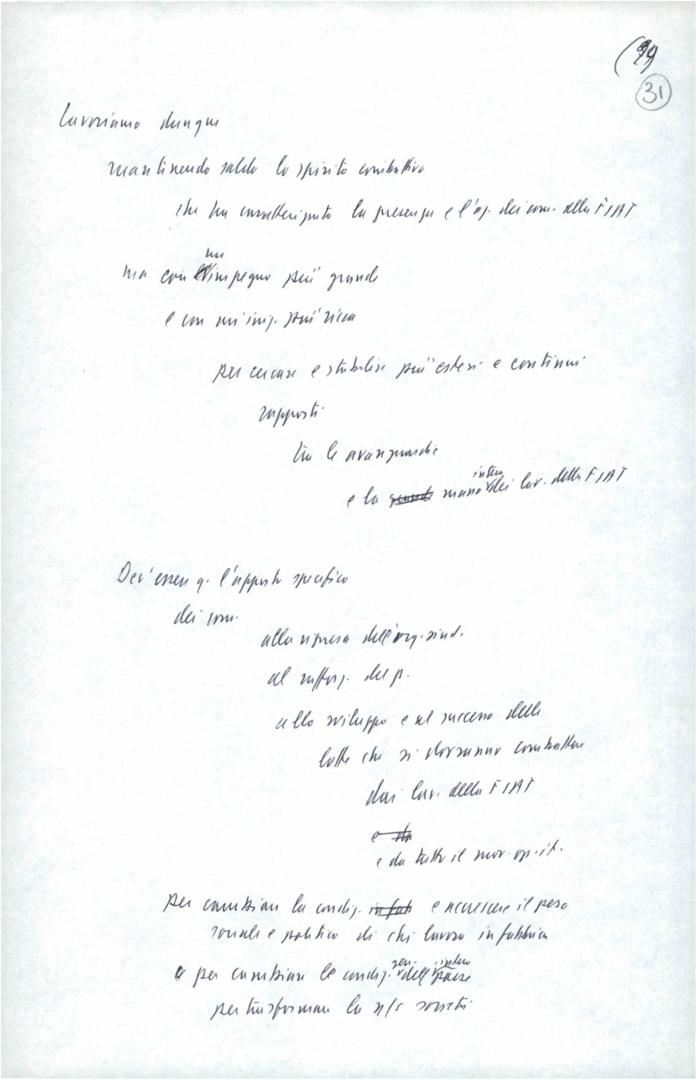 31
Lavoriamo dunque
mantenendo saldo lo spirito combattivo
che ha caratterizzato la presenza e l'az. dei com. della FIAT
un
ma con impegno più grande
e con un'iniz. più ricca
per cercare e stabilire più estesi e continui
rapporti
tra le avanguardie
intera
e la grande massa dei lav. della FIAT
Dev'essere q. l'apporto specifico
dei com.
alla ripresa dell'org. sind.
al rafforz. del p.
allo sviluppo e al successo delle
lotte che si dovranno combattere
dai lav. della FIAT
e
e da tutto il mov. op. it.
per cambiare la condiz. in fab e accrescere il peso
sociale e politico di chi lavora in fabbrica
gen. intero
e per cambiare le condiz. dell' paese
per trasformare la n/s società